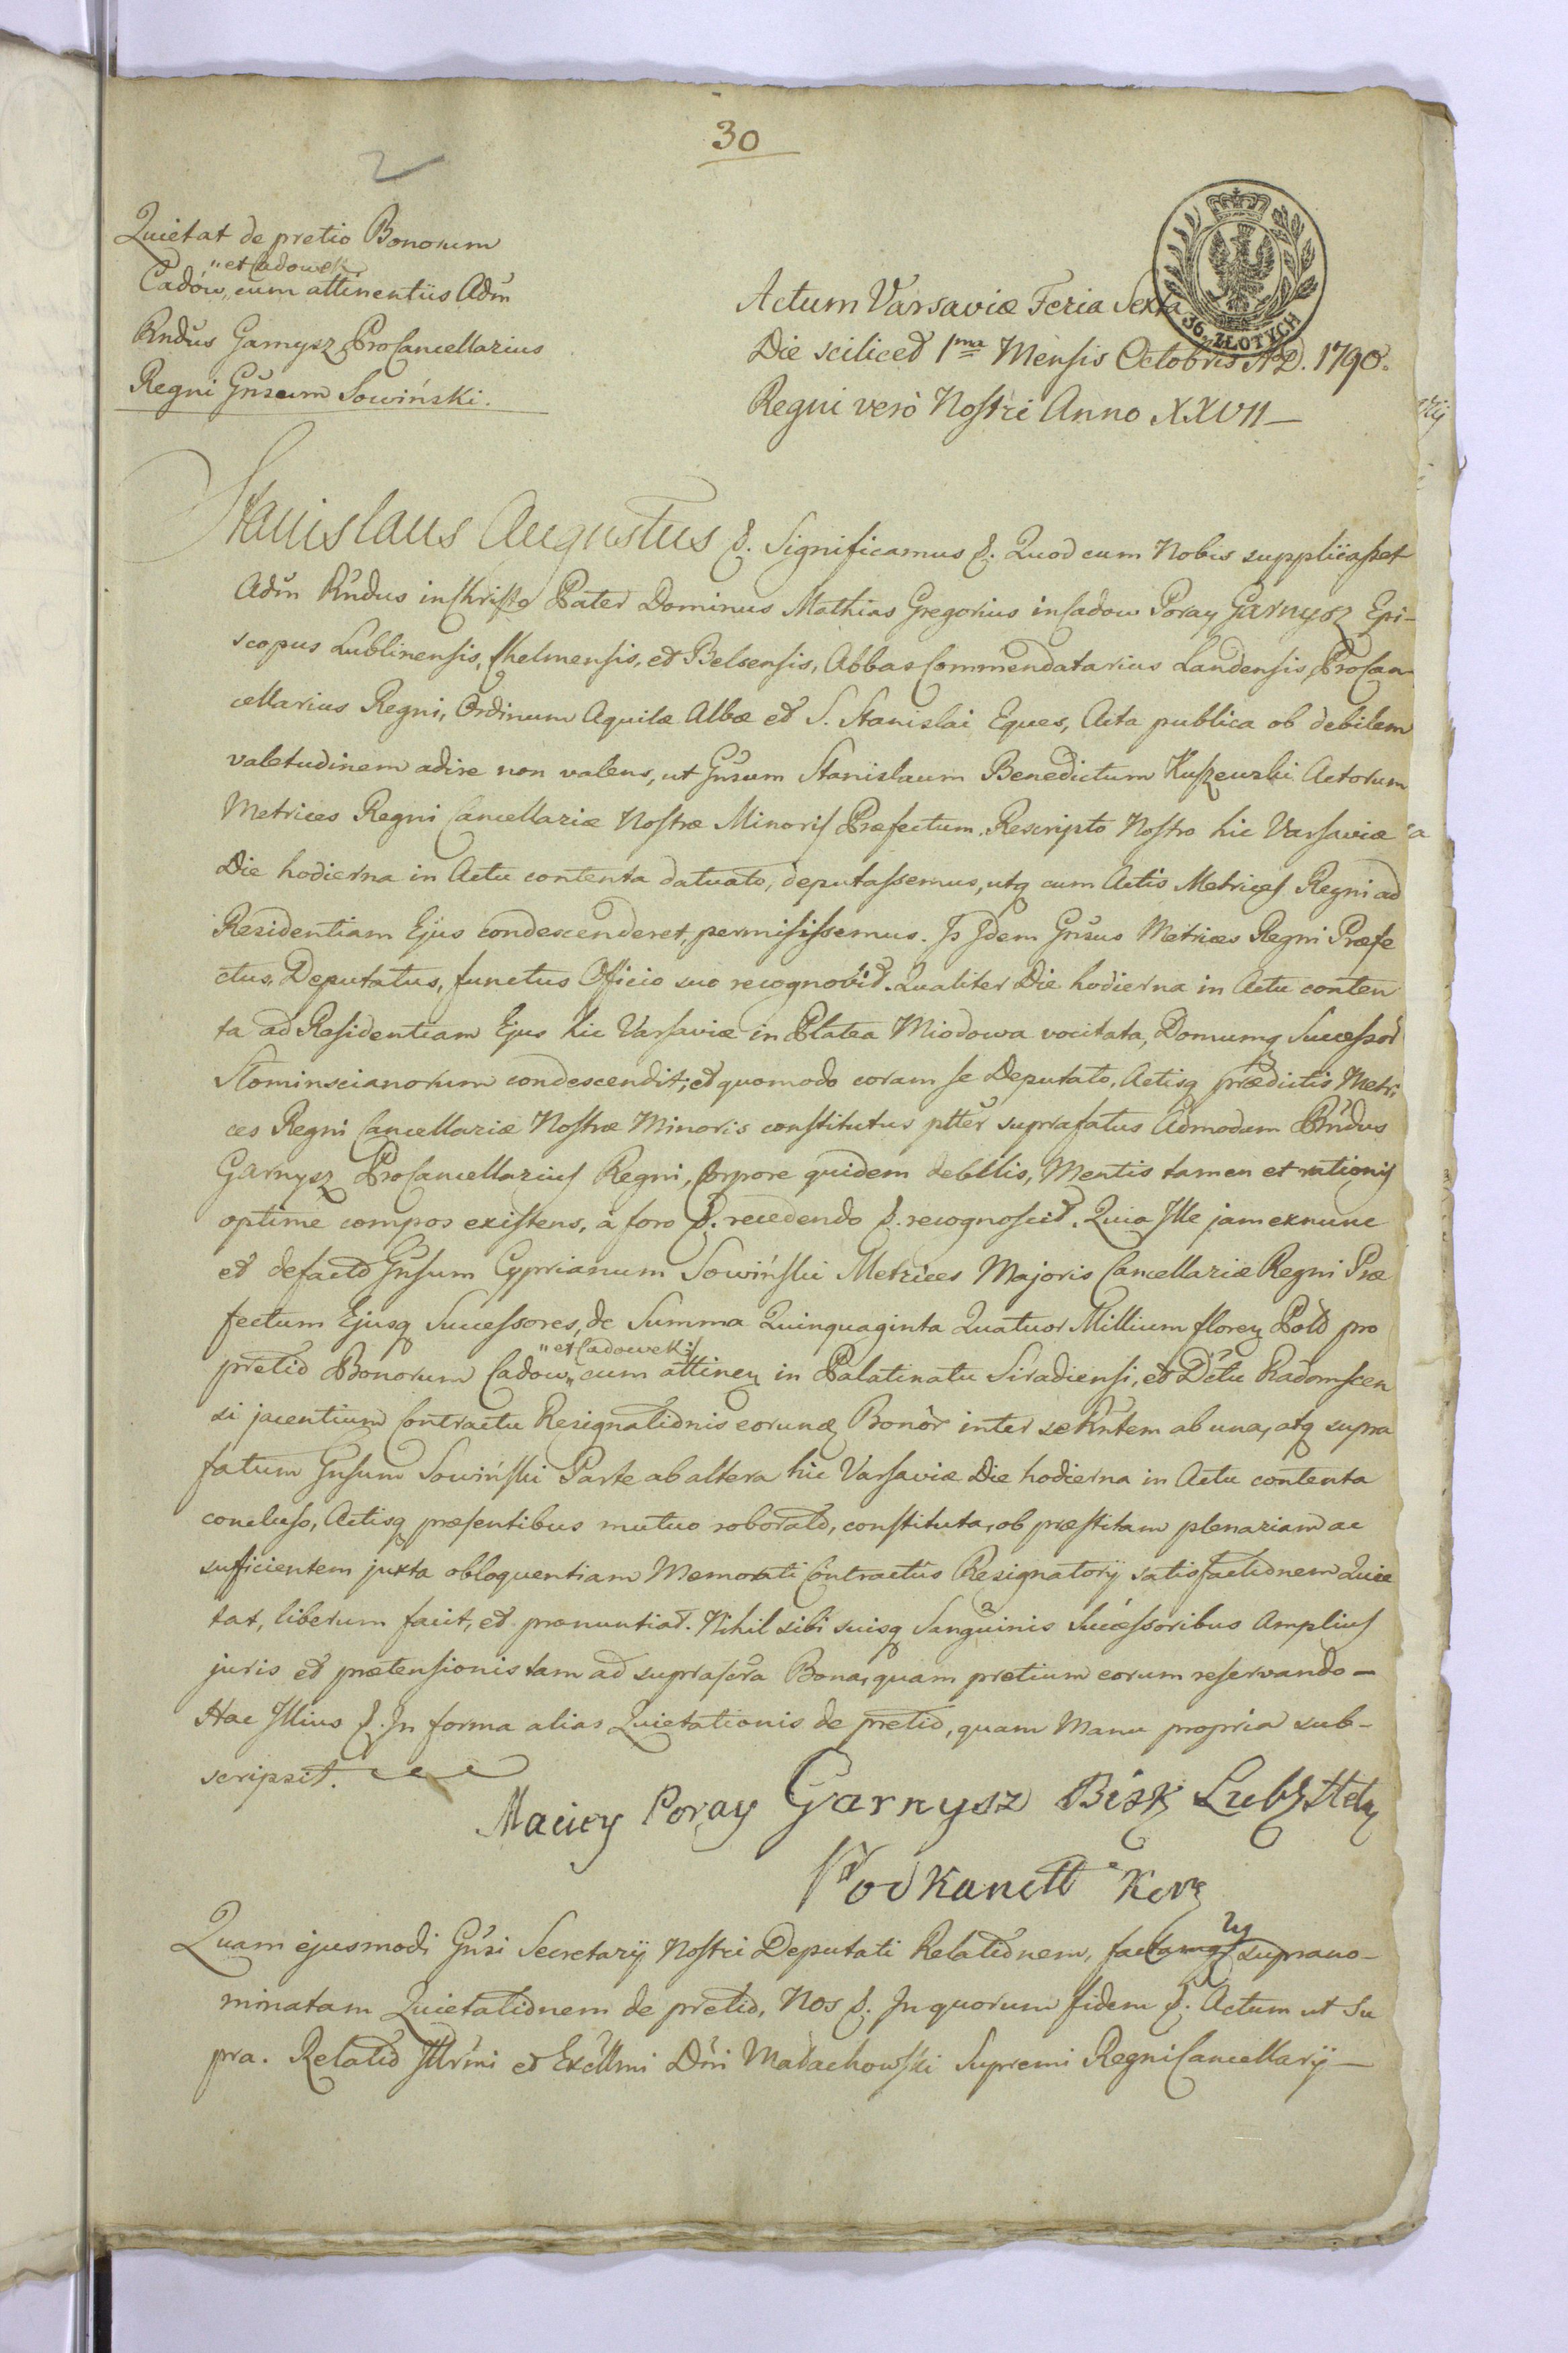 30
2
Quietat de pretio Bonorum
"et Cadowek
Cadow, cum attinentiis Adm
Rndus Garnysz ProCancellarius
Regni Gnsum Sowiński.
36. ZŁOTYCH
Actum Varsaviæ Feria Sexta
Die scilicet 1ma Mensis Octobris A.D. 1790.
Regni verò Nostri Anno XXVII —
Stanislaus Augustus &. Significamus &. Quod cum Nobis supplicasset
Adm Rndus in Christo Pater Dominus Mathias Gregorius in Cadow Poray Garnysz Epi-
scopus Lublinensis, Chelmensis, et Belsensis, Abbas Commendatarius Landensis, ProCan-
cellarius Regni, Ordinum Aquilæ Albæ et S. Stanislai Eques, Acta publica ob debilem
valetudinem adire non valens, ut Gnsum Stanislaum Benedictum Kuszewski Actorum
Metrices Regni Cancellariæ Nostræ Minoris Præfectum. Rescripto Nostro hic Varsaviæ
Die hodierna in Actu contenta datuato, deputassemus, utq cum Actis Metrices Regni ad
Residentiam Ejus condescenderet, permisissemus. Is Idem Gnsus Metrices Regni Præfe
ctus, Deputatus, functus Officio suo recognovit. Qualiter Die hodierna in Actu conten
ta ad Residentiam Ejus hic Varsaviæ in Platea Miodowa vocitata, Domumq Successor
Slominscianorum condescendit; et quomodo coram se Deputato, Actisq prædictis Metri
ces Regni Cancellariæ Nostræ Minoris constitutus ptter suprafatus Admodum Rndus
Garnysz ProCancellarius Regni, Corpore quidem debilis, Mentis tamen et rationis
optime compos existens, à foro &. recedendo &. recognoscit. Quia Ille jam exnunc
et defacto Gnsum Cyprianum Sowiński Metrices Majoris Cancellariæ Regni Præ
fectum Ejusq Successores, de Summa Quinquaginta Quatuor Millium floren Pold pro
"et Cadowek
pretio Bonorum Cadow, cum attinen in Palatinatu Siradiensi, et Dctu Radomscen
si jacentium Contractu Resignationis eorund Bonor inter se Rntem ab una, atq supra
fatum Gnsum Sowiński Parte ab altera hic Varsaviæ Die hodierna in Actu contenta
concluso, Actisq præsentibus mutuo roborato, constituta, ob præstitam plenariam ac
sufficientem juxta obloquentiam Memorati Contractus Resignatorij satisfactionem Quie
tat, liberum facit, et pronuntiat. Nihil sibi suisq Sanguinis Successoribus Amplius
juris et prætensionis tam ad suprascra Bona, quam pretium eorum reservando —
Hac Illius &. In forma alias Quietationis de pretio, quam Manu propria sub-
scripsit.
Maciey Poray Garnysz Bisk Lub
Podkanclł Kor
Quam ejusmodi Gnsi Secretarij Nostri Deputati Relationem, supra no-
minatam Quietationem de pretio, Nos &. In quorum fidem &. Actum ut Su
pra. Relatio Illrmi et Excllmi Dni Małachowski Supremi Regni Cancellarij —